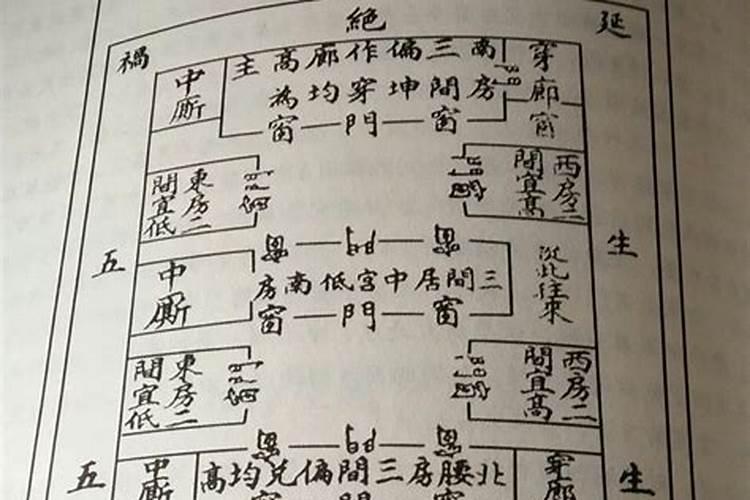 絶
延
禍
穿廊
窗
南房三間偏坤作穿廊均高為主
中厮
窗 門 窗
門窗
西房二間宜高
東房二間宜低
門窗
五
生
窗 門 窗
三間居中宮低南房
中厮
從此往來
窗 門 窗
西房二間宜高
門窗
東房二間宜低
門窗
窗 門 窗
五
生
穿廊
北腰房三間偏兌均高
中厮